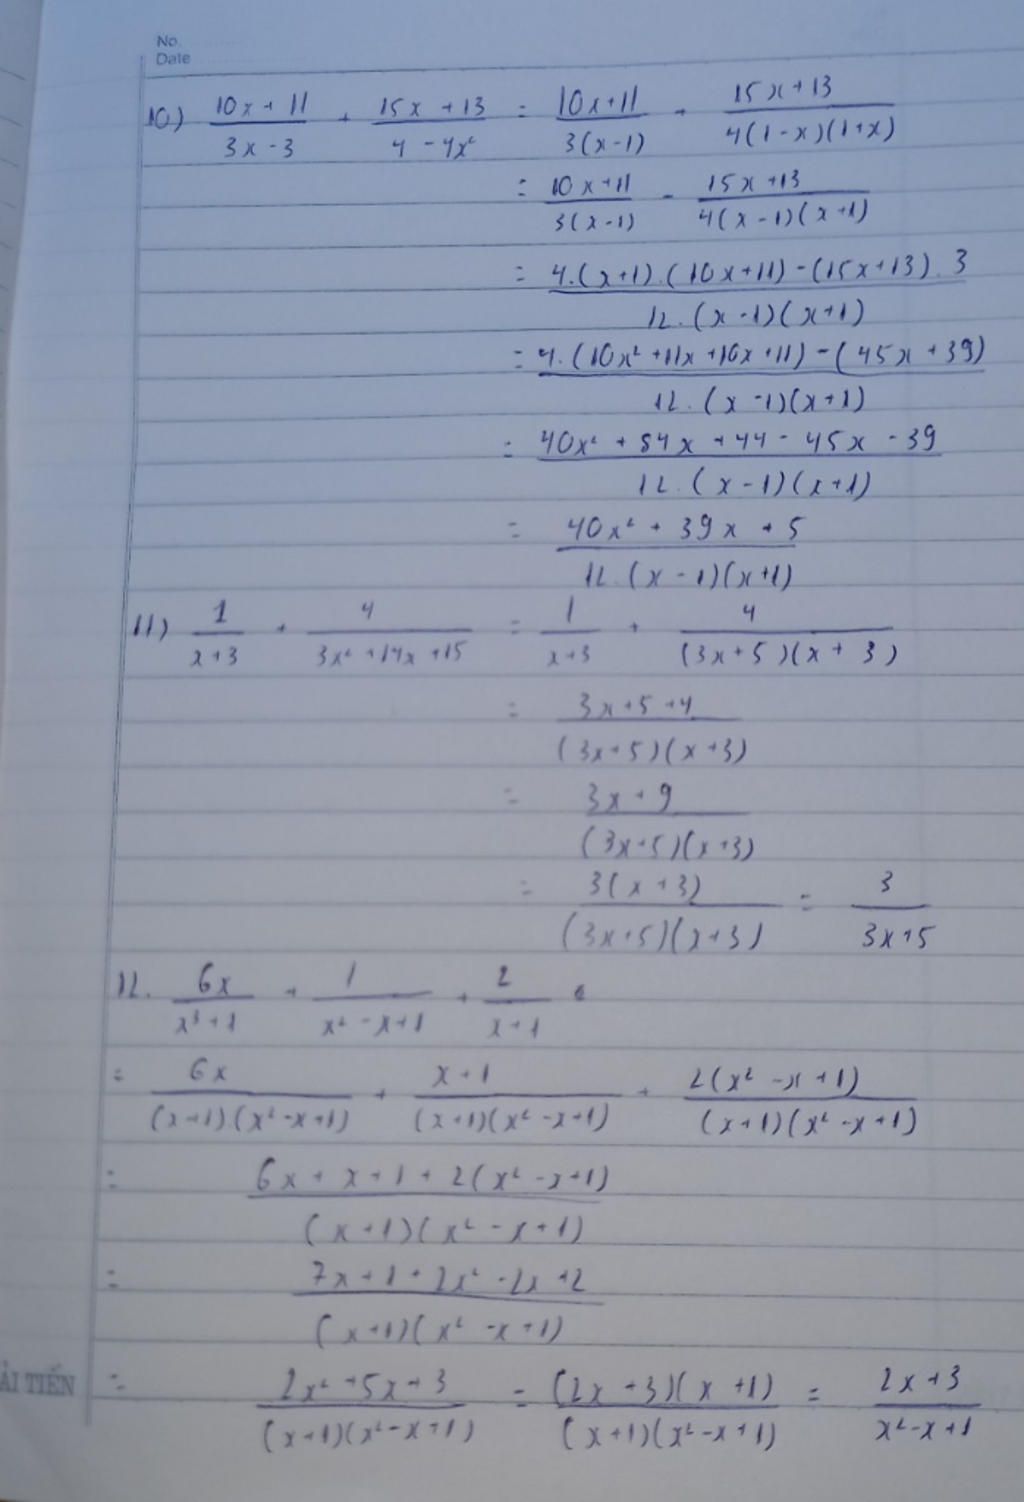 No.
Date
10) (10x + 11)/(3x - 3) + (15x + 13)/(4 - 4x²) = (10x+11)/(3(x-1)) + (15x+13)/(4(1-x)(1+x))
= (10x+11)/(3(x-1)) - (15x+13)/(4(x-1)(x+1))
= (4.(x+1).(10x+11)-(15x+13).3)/(12.(x-1)(x+1))
= (4.(10x²+11x+10x+11)-(45x+39))/(12.(x-1)(x+1))
= (40x² + 84x + 44 - 45x - 39)/(12.(x-1)(x+1))
= (40x² + 39x + 5)/(12.(x-1)(x+1))
11) 1/(x+3) + 4/(3x²+14x+15) = 1/(x+3) + 4/((3x+5)(x+3))
= (3x+5+4)/((3x+5)(x+3))
= (3x+9)/((3x+5)(x+3))
= (3(x+3))/((3x+5)(x+3)) = 3/(3x+5)
12. 6x/(x³+1) + 1/(x²-x+1) + 2/(x+1)
= 6x/((x+1).(x²-x+1)) + (x+1)/((x+1)(x²-x+1)) + (2(x²-x+1))/((x+1)(x²-x+1))
= (6x+x+1+2(x²-x+1))/((x+1)(x²-x+1))
= (7x+1+2x²-2x+2)/((x+1)(x²-x+1))
= (2x²+5x+3)/((x+1)(x²-x+1)) = ((2x+3)(x+1))/((x+1)(x²-x+1)) = (2x+3)/(x²-x+1)
TIẾN